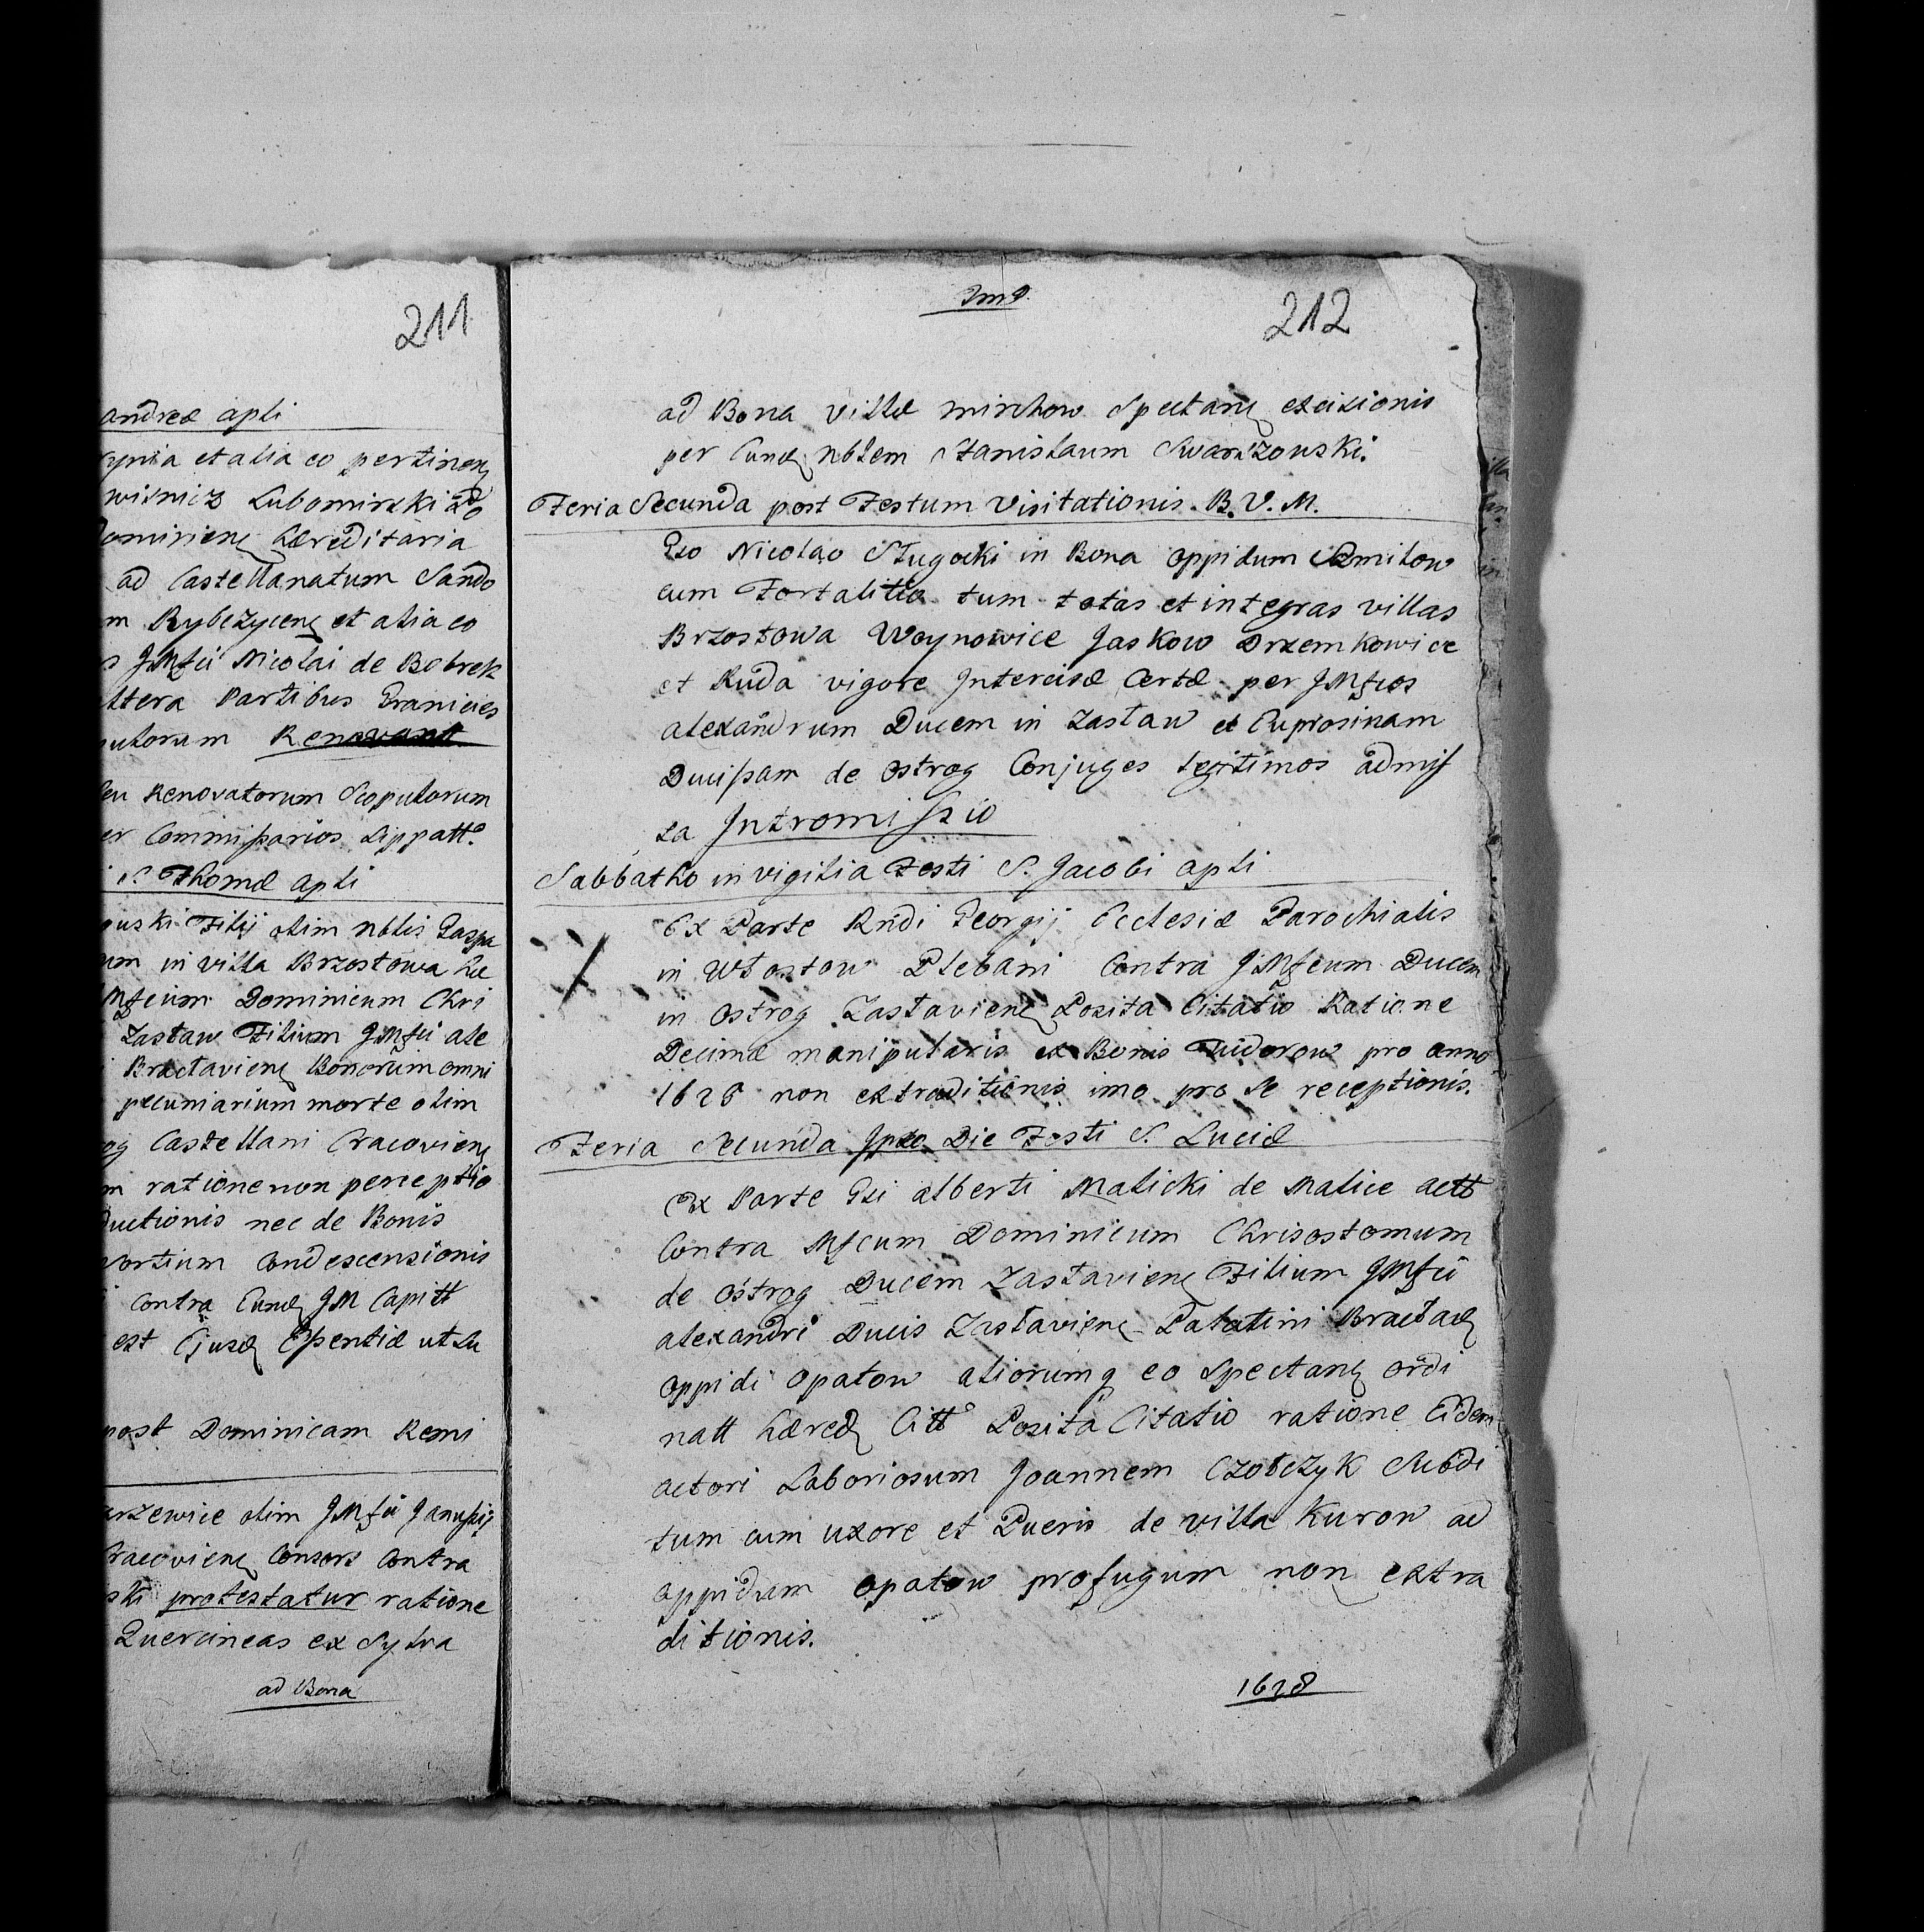 211
andreæ apli
et alia eo pertinen
wisnicz Lubomirski ad
hæreditaria
ad Castellanatum Sando
m Rybczycen et alia eo
JMfci Nicolai de Bobrek
ltera Partibus Granicies
Renovant
Renovatorum Scopulorum
er Commissarios Sippatto
S. Thomæ apli
guski Filij olim Nblis Gaspa
um in villa Brzostowa hæ
Mfcium Dominicum Chri
Zasław Filium JMfci ale
Bractavien Bonorum omni
pecuniarium morte olim
og Castellani Cracovien
m ratione non perceptio
ductionis nec de Bonis
vortium Condescensionis
Contra Cund JM Capitt
est Ejusd Essentiæ ut Su
post Dominicam Remi
arzewice olim JMfci Janussij
Cracovien Consors Contra
ski protestatur ratione
Quercineas ex Sylva
ad Bona
212
ad Bona villæ mirchow Spectan excisionis
per Cund Nblem Stanislaum
Feria Secunda post Festum Visitationis B. V. M.
Gso Nicolao Sługocki in Bona oppidum Cmilow
cum Fortalitio tum totas et integras villas
Brzostowa Woynowice Jaskow Drzemkowice
et Ruda vigore Intercisæ Certæ per JMfcos
alexandrum Ducem in Zasław et Euprosinam
Ducissam de Ostrog Conjuges legitimos admis
sa Intromissio
Sabbatho in vigilia Festi S. Jacobi apli
Ex Parte Rndi Georgij Ecclesiæ Parochialis
in Włostow Plebani Contra JMfcum Ducem
in Ostrog Zasłavien Posita Citatio Ratione
Decimæ manipularis ex Bonis pro anno
1626 non extraditionis imo pro se receptionis.
Feria Secunda Ipso Die Festi S. Luciæ
Ex Parte Gsi alberti Malicki de Malice actt
Contra Mfcum Dominicum Chrisostomum
de Ostrog Ducem Zasłavien Filium JMfci
alexandri Ducis Zasłavien Palatini Bractav
oppidi Opatow aliorumq eo Spectan ordi
natt hæred Citto Posita Citatio ratione Eidem
actori Laboriosum Joannem Czobczyk Subdi
tum cum uxore et Pueris de villa Kurow ad
oppidum opatow profugum non extra
ditionis.
1628